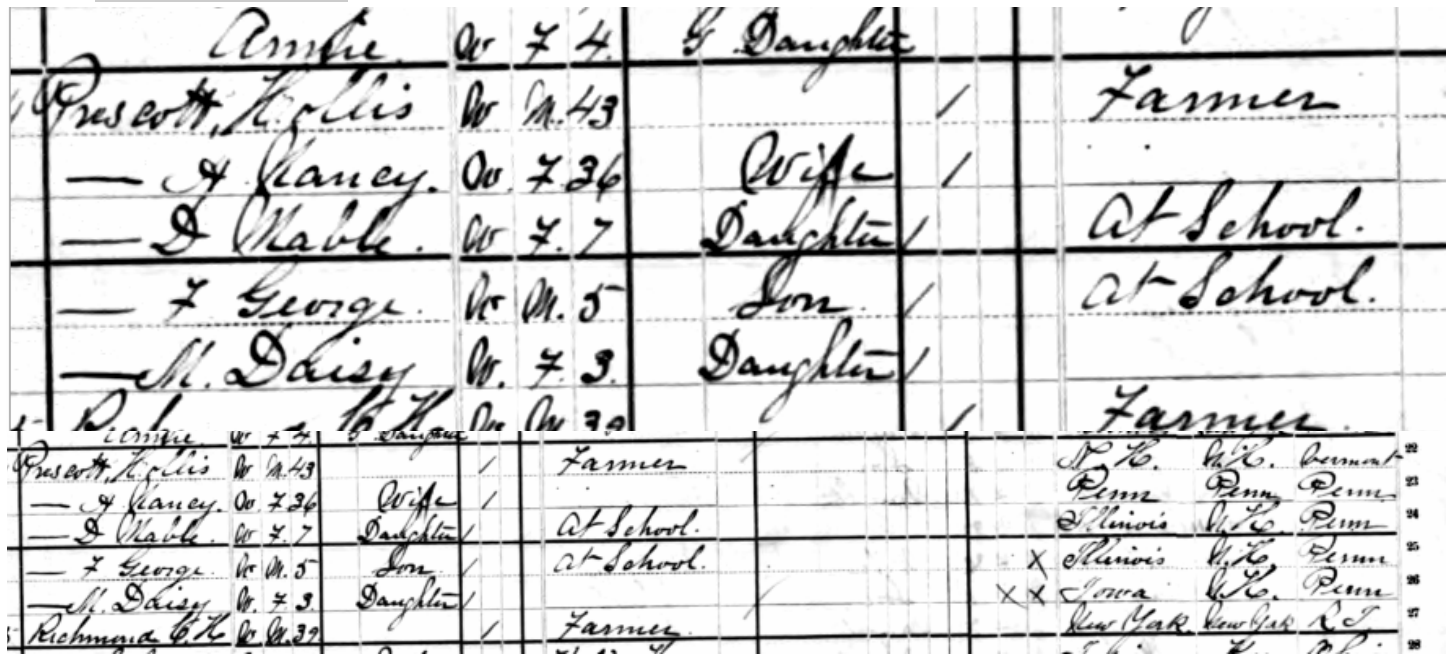 Annie. W F 4. G Daughter
Prescott, Hollis W M. 43 / Farmer
— A Nancy. W. F. 36 Wife /
— D Mable. W F. 7 Daughter / At School.
— F George. W M. 5 Son. / At School.
— M. Daisy W. F. 3. Daughter /
Richmond C. H. W M 39 / Farmer
Annie. W F 4. G Daughter 22
Prescott, Hollis W M. 43 / Farmer N. H. N. H. Vermont
— A Nancy. W. F 36 Wife / Penn Penn Penn 23
— D Mable. W F. 7 Daughter / At School. Illinois N. H. Penn 24
— F George. W M. 5 Son / At School. X Illinois N. H. Penn 25
— M. Daisy W. F 3. Daughter / X X Iowa N. H. Penn 26
Richmond C. H W M. 39 / Farmer. New York. New York R. I. 27
28